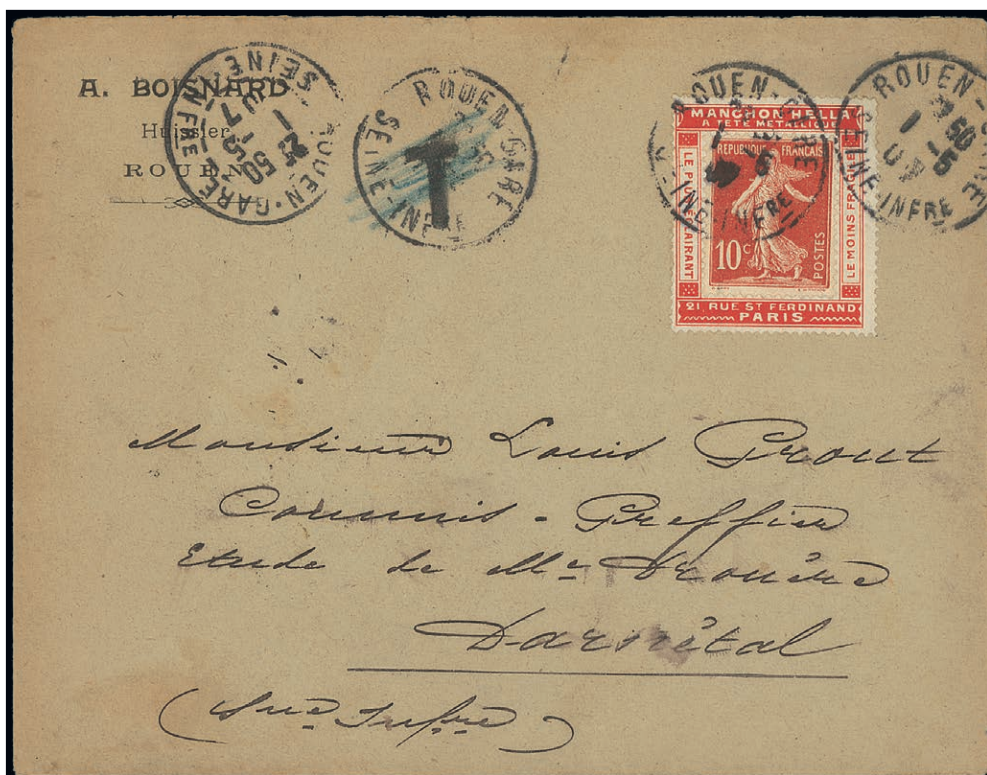 A. BOISNARD
Huissier
ROUEN
ROUEN-GARE
SEINE-INFRE
ROUEN-GARE
SEINE-INFRE
T
ROUEN-GARE
SEINE-INFRE
ROUEN-GARE
SEINE-INFRE
MANCHON HELLA
A TETE METALLIQUE
LE PLUS ECLAIRANT
LE MOINS FRAGILE
REPUBLIQUE FRANÇAISE
10c
POSTES
21 RUE ST FERDINAND
PARIS
Monsieur Louis Prout
Commis-Greffier
Etude de Me Drouère
Darnétal
(Sne Infre)